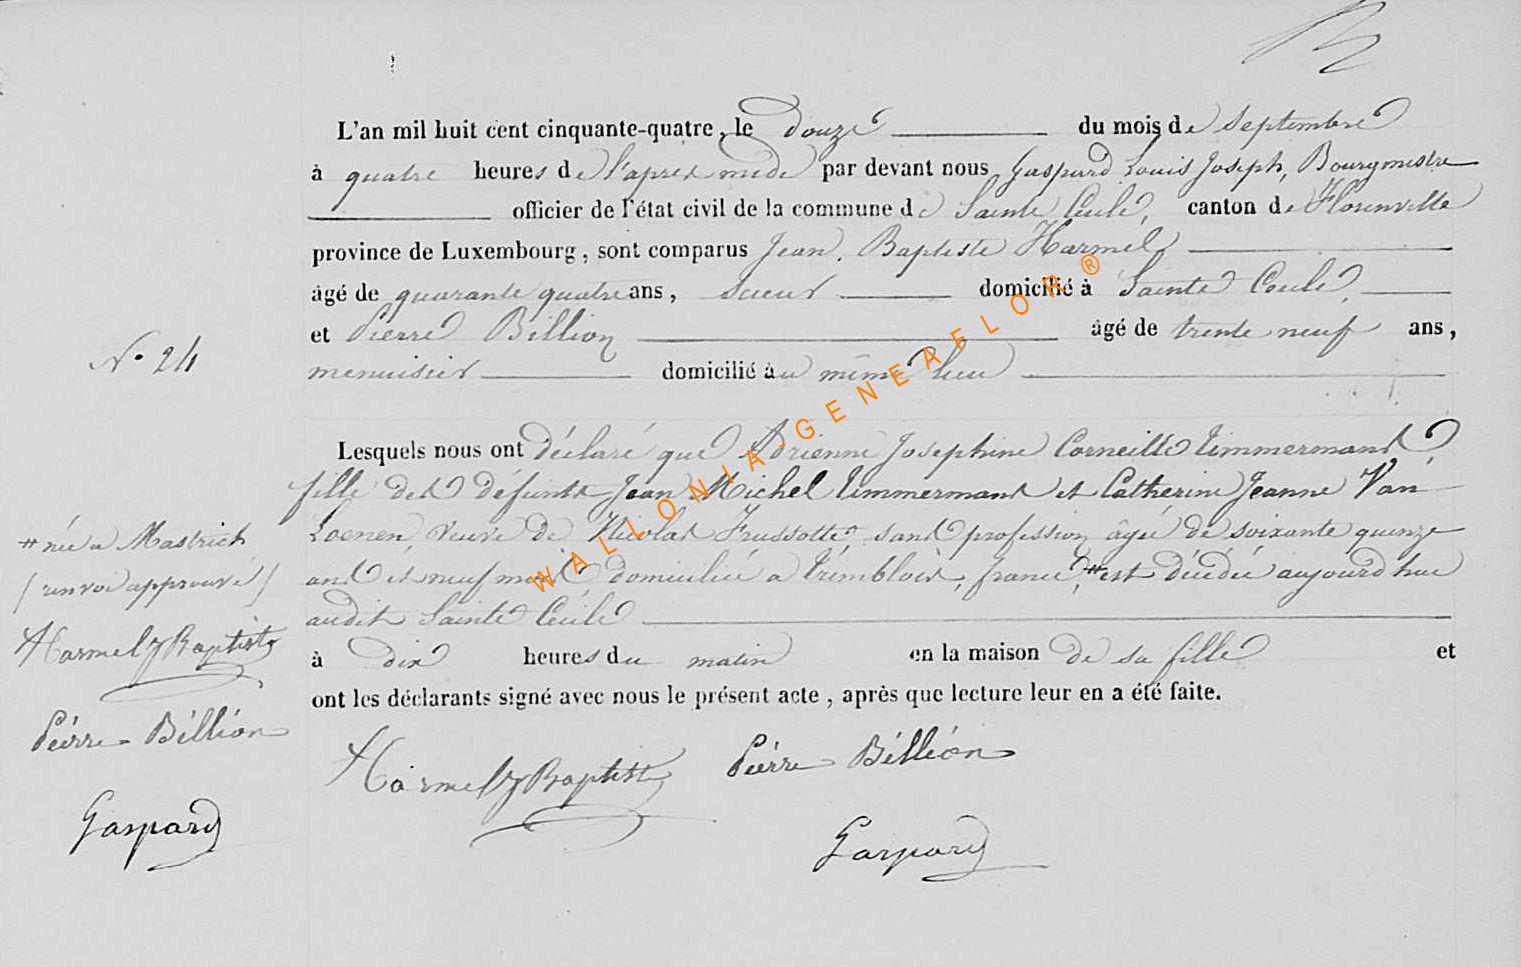 L'an mil huit cent cinquante-quatre, le douze du mois de Septembre
à quatre heures de l'après midi par devant nous Gaspard Louis Joseph, Bourgmestre
officier de l'état civil de la commune de Sainte Cécile, canton de Florenville
province de Luxembourg, sont comparus Jean Baptiste Harmel
âgé de quarante quatre ans, domicilié à Sainte Cécile,
et Pierre Billion âgé de trente neuf ans,
menuisier domicilié au même lieu
N° 24
Lesquels nous ont déclaré que Adrienne Josephine Corneille Timmermans
fille des défunts Jean Michel Timmermans et Catherine Jeanne Van
Loenen, veuve de Nicolas Frussotte sans profession âgée de soixante quinze
ans et neuf mois domiciliée a Trembloix, france, # est décédée aujourd'hui
audit Sainte Cécile
à dix heures du matin en la maison de sa fille et
ont les déclarants signé avec nous le présent acte, après que lecture leur en a été faite.
# née a Mastrich
(renvoi approuvé)
Harmel J Baptiste
Piérre Billión
Gaspard
Harmel J Baptiste Piérre Billión
Gaspard
WALLONIA-GENEAFLOR ®